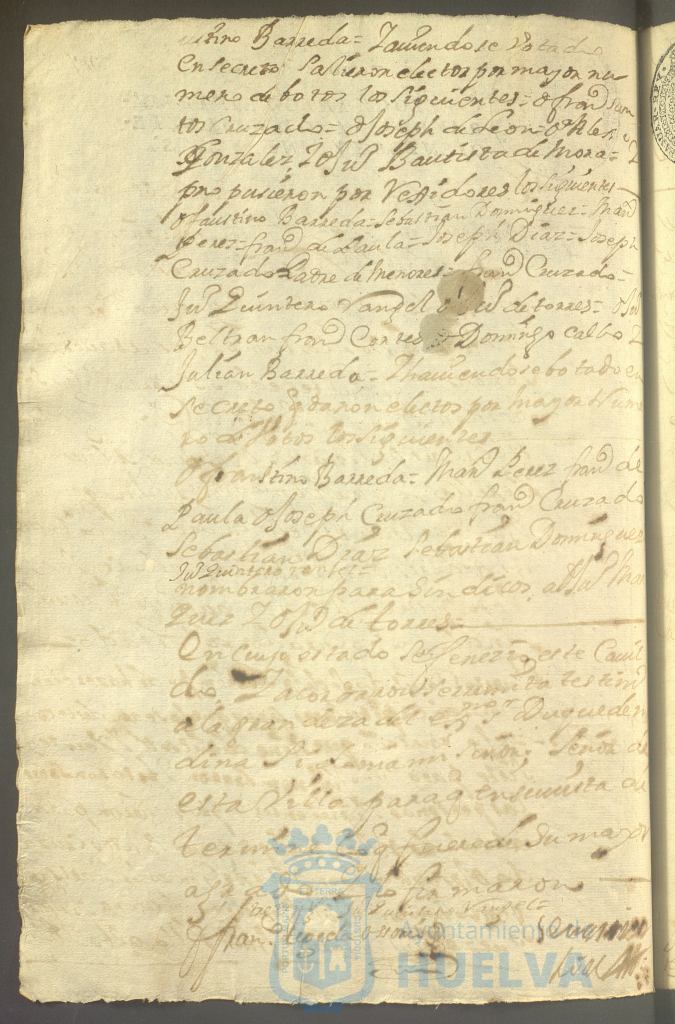 tino Barreda= Y auiendose Votado
en secreto salieron electos por mayor nu
mero de botos los siguientes= Dn fran San
tos Cruzado= Dn Joseph de Leon= Dn Alex
Gonzalez Y Dn Ju Bautista de Mora=
pusieron por Rejidores los siguientes
Dn faustino Barreda= Sebastian Dominguez= Man
Perez= fran de Paula= Joseph Diaz= Joseph
Cruzado Padre de Menores= fran Cruzado=
Ju Quintero Vangel Ju de torres=
Beltran fran Cortes Domingo calbo Y
Julian Barreda= Y hauiendose botado en
secreto qdaron electos por mayor Nume
ro de Votos los siguientes
Dn faustino Barreda= Man Perez fran de
Paula Dn Joseph Cruzado fran Cruzado
Sebastian Diaz Sebastian Dominguez
Ju Quintero Vangel=
nombraron para Sindicos, a Ju Mar
quez Y Dn Ju de torres=
En cuyo estado se fenezio este Cauil
do Y acordaron se rremita testim
a la grandeza del Duque de Me
dina Sidonia mi señor, Señor de
esta Villa para q en su vista de
termine lo q fuere de su mayor
agrado y lo firmaron
Quintero Vangel=
fran
Ayuntamiento de
HUELVA